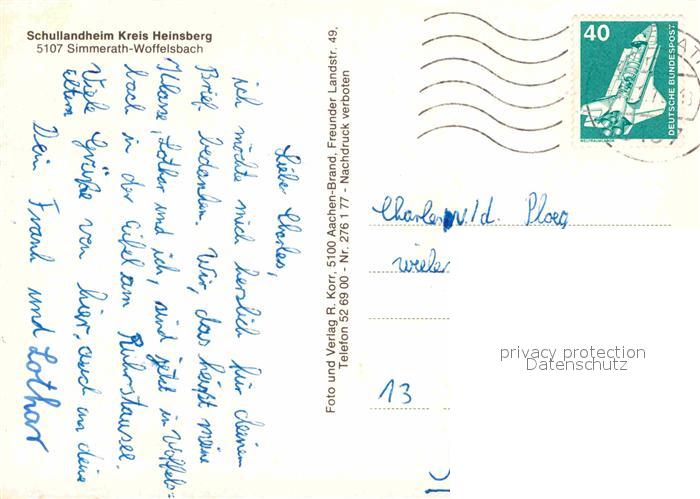 Schullandheim Kreis Heinsberg
5107 Simmerath-Woffelsbach
Liebe Charles,
ich möchte mich herzlich für deinen
Brief bedanken. Wir, das heißt meine
Klasse, Lothar und ich, sind jetzt in Woffels=
bach in der Eifel am Ruhrstausee.
Viele Grüße von hier, auch an deine
Eltern
Dein Frank und Lothar
Foto und Verlag R. Korr, 5100 Aachen-Brand, Freunder Landstr. 49,
Telefon 52 69 00 - Nr. 276 1 77 - Nachdruck verboten
40
DEUTSCHE BUNDESPOST
WELTRAUMLABOR
Charles v/d. Ploeg
13
privacy protection
Datenschutz